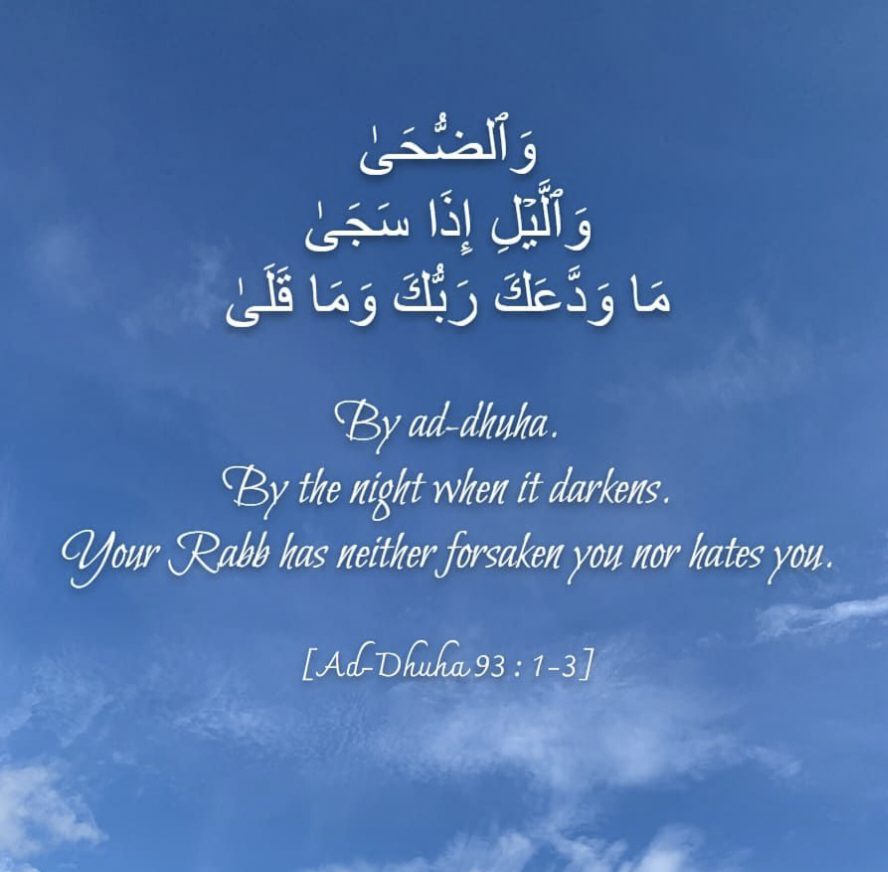 وَٱلضُّحَىٰ
وَٱلَّيْلِ إِذَا سَجَىٰ
مَا وَدَّعَكَ رَبُّكَ وَمَا قَلَىٰ
By ad-dhuha.
By the night when it darkens.
Your Rabb has neither forsaken you nor hates you.
[Ad-Dhuha 93 : 1-3]